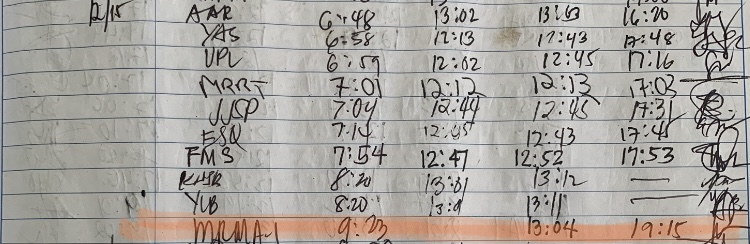 12/15 AAR 6:48 13:02 16:20
YAS 6:58 12:13 12:43 17:48
VPL 6:59 12:02 12:45 17:16
MRRT 7:01 12:12 12:13 17:03
JJSP 7:04 12:44 12:45 17:31
ESQ 7:14 12:43
FMS 7:54 12:47 12:52 17:53
8:20 13:12 —
YUB 8:20 13:11 —
9:23 13:04 19:15